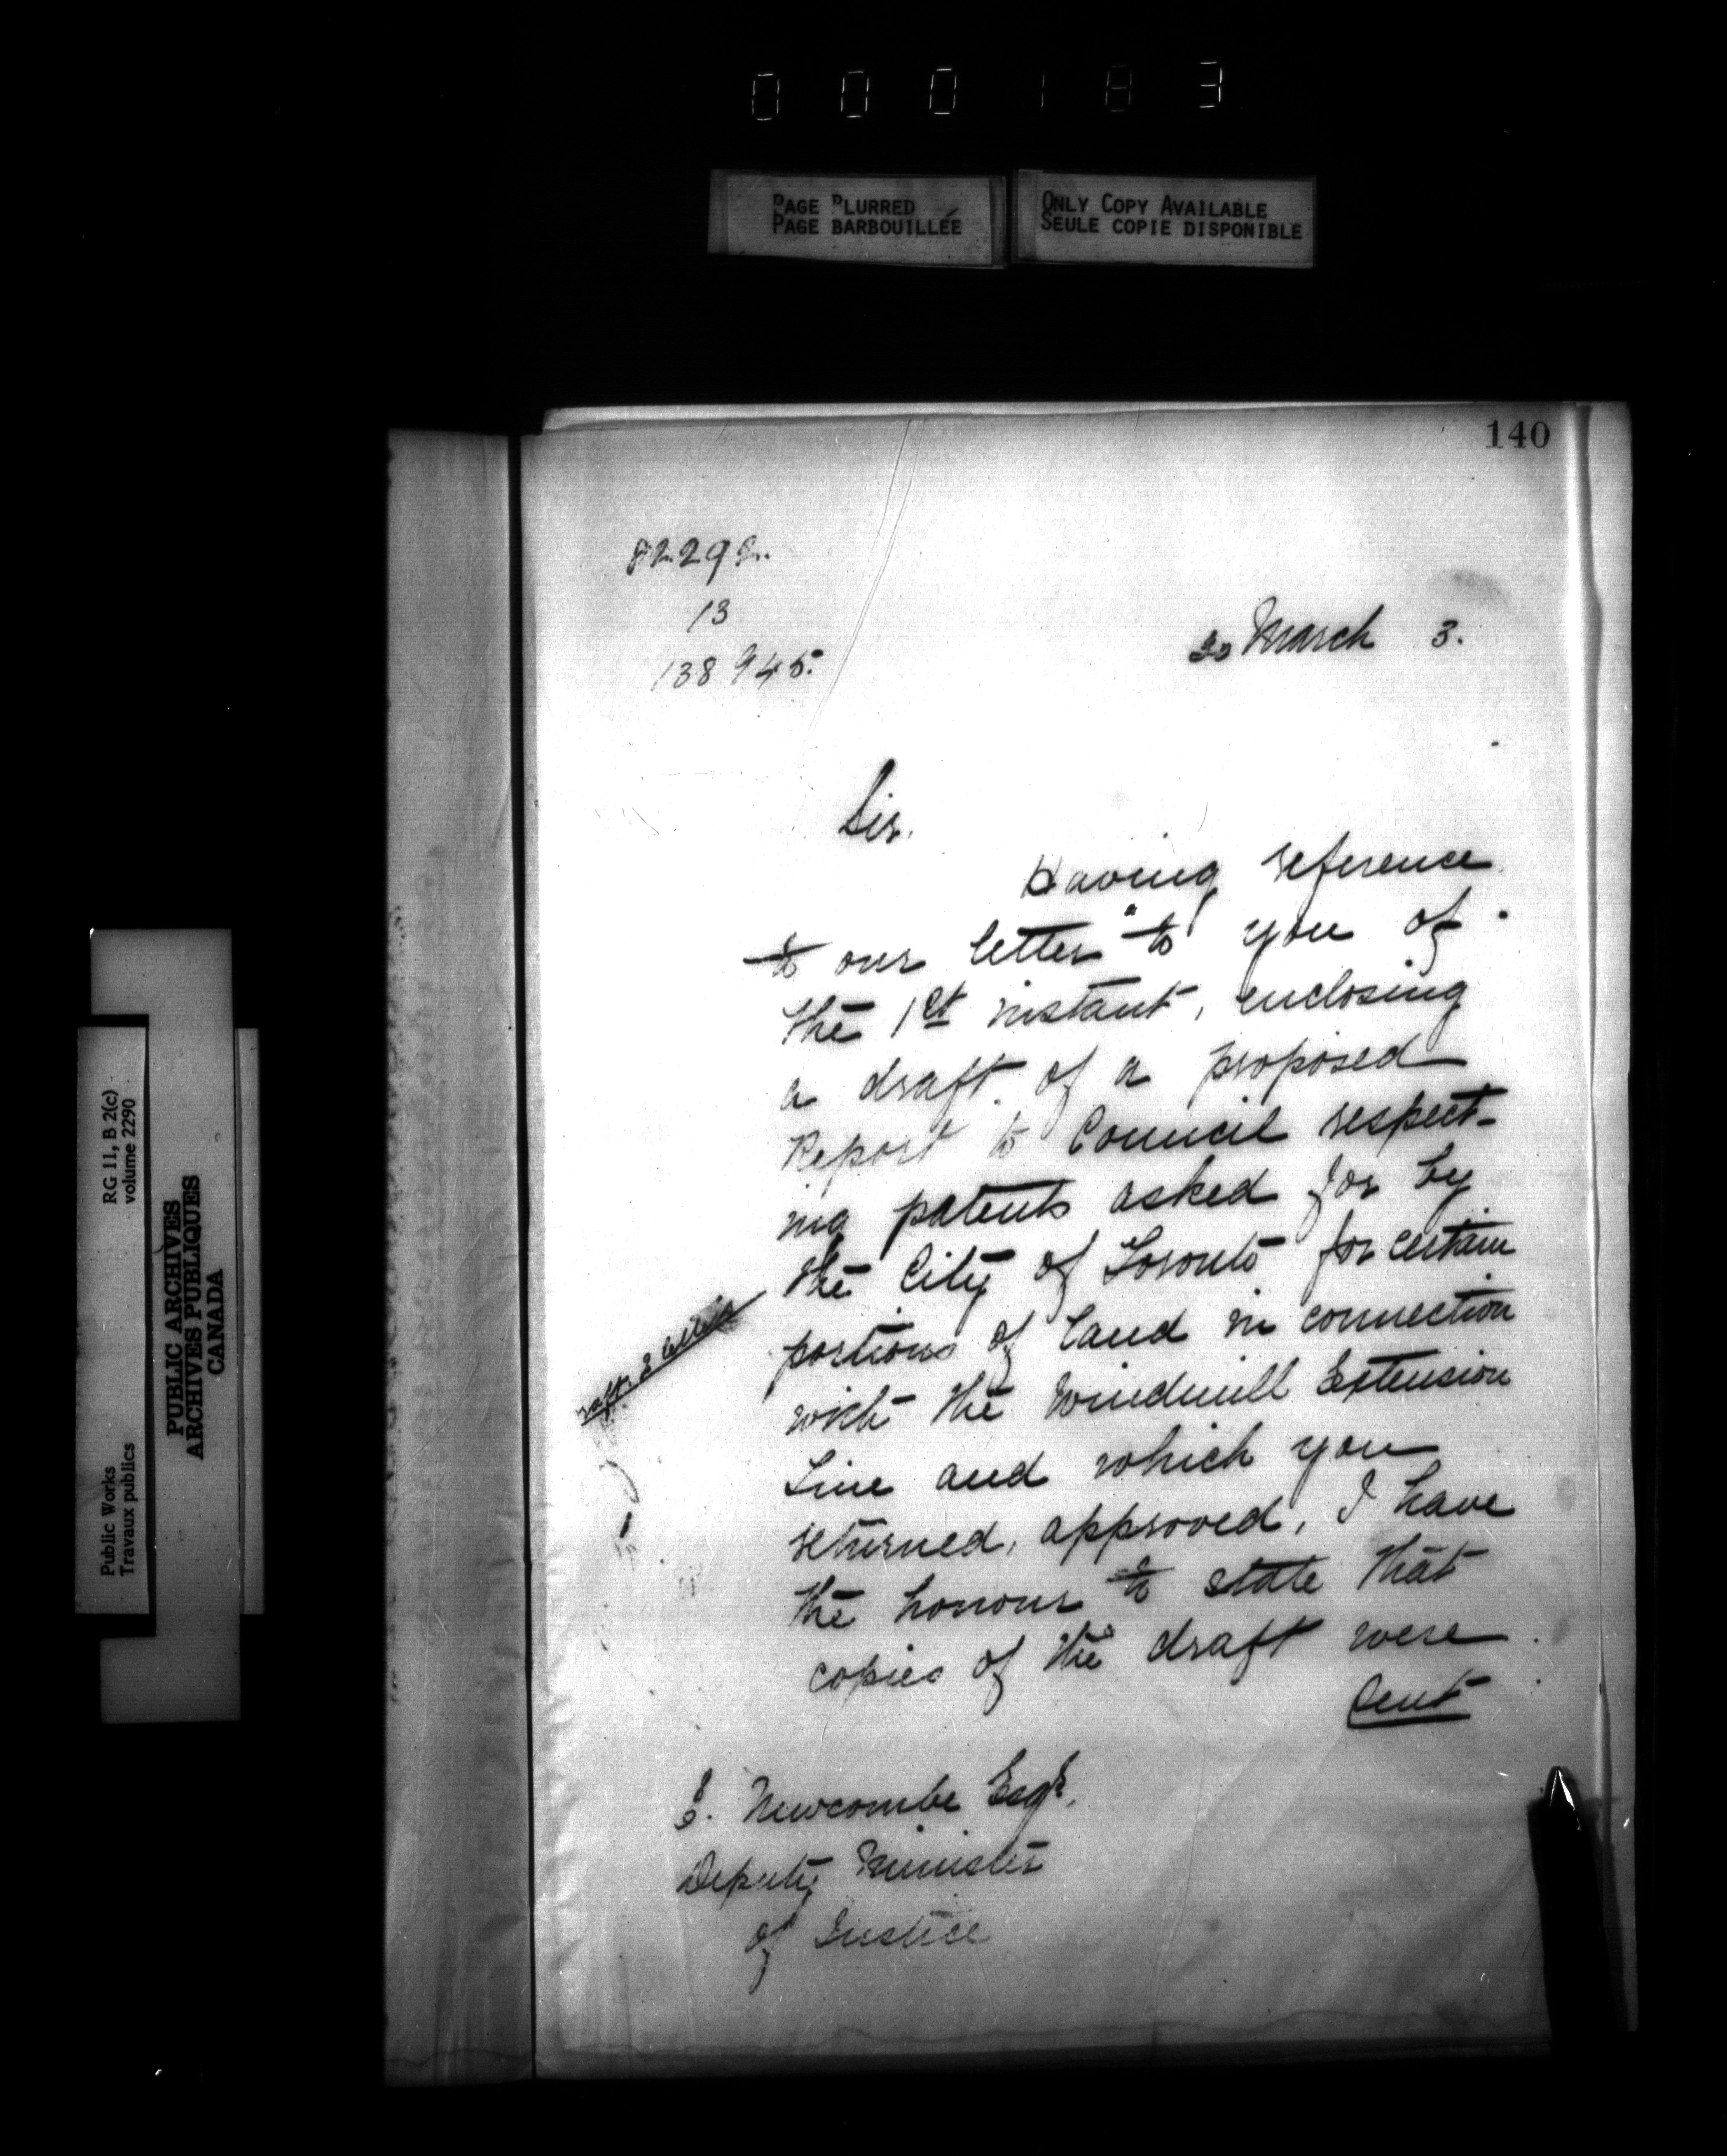 000183
PAGE BLURRED
PAGE BARBOUILLÉE
ONLY COPY AVAILABLE
SEULE COPIE DISPONIBLE
140
13
138945.
March 3.
Sir,
Having reference
to our letter to you of
the 1st instant, enclosing
a draft of a proposed
Report to Council respect-
ing patents asked for by
the City of Toronto for certain
portions of land in connection
with the Windmill Extension
Line and which you
returned, approved, I have
the honour to state that
copies of the draft were
sent
E. Newcombe Esqr.
Deputy Minister
of Justice
RG 11, B 2(c)
volume 2290
Public Works
Travaux publics
PUBLIC ARCHIVES
ARCHIVES PUBLIQUES
CANADA